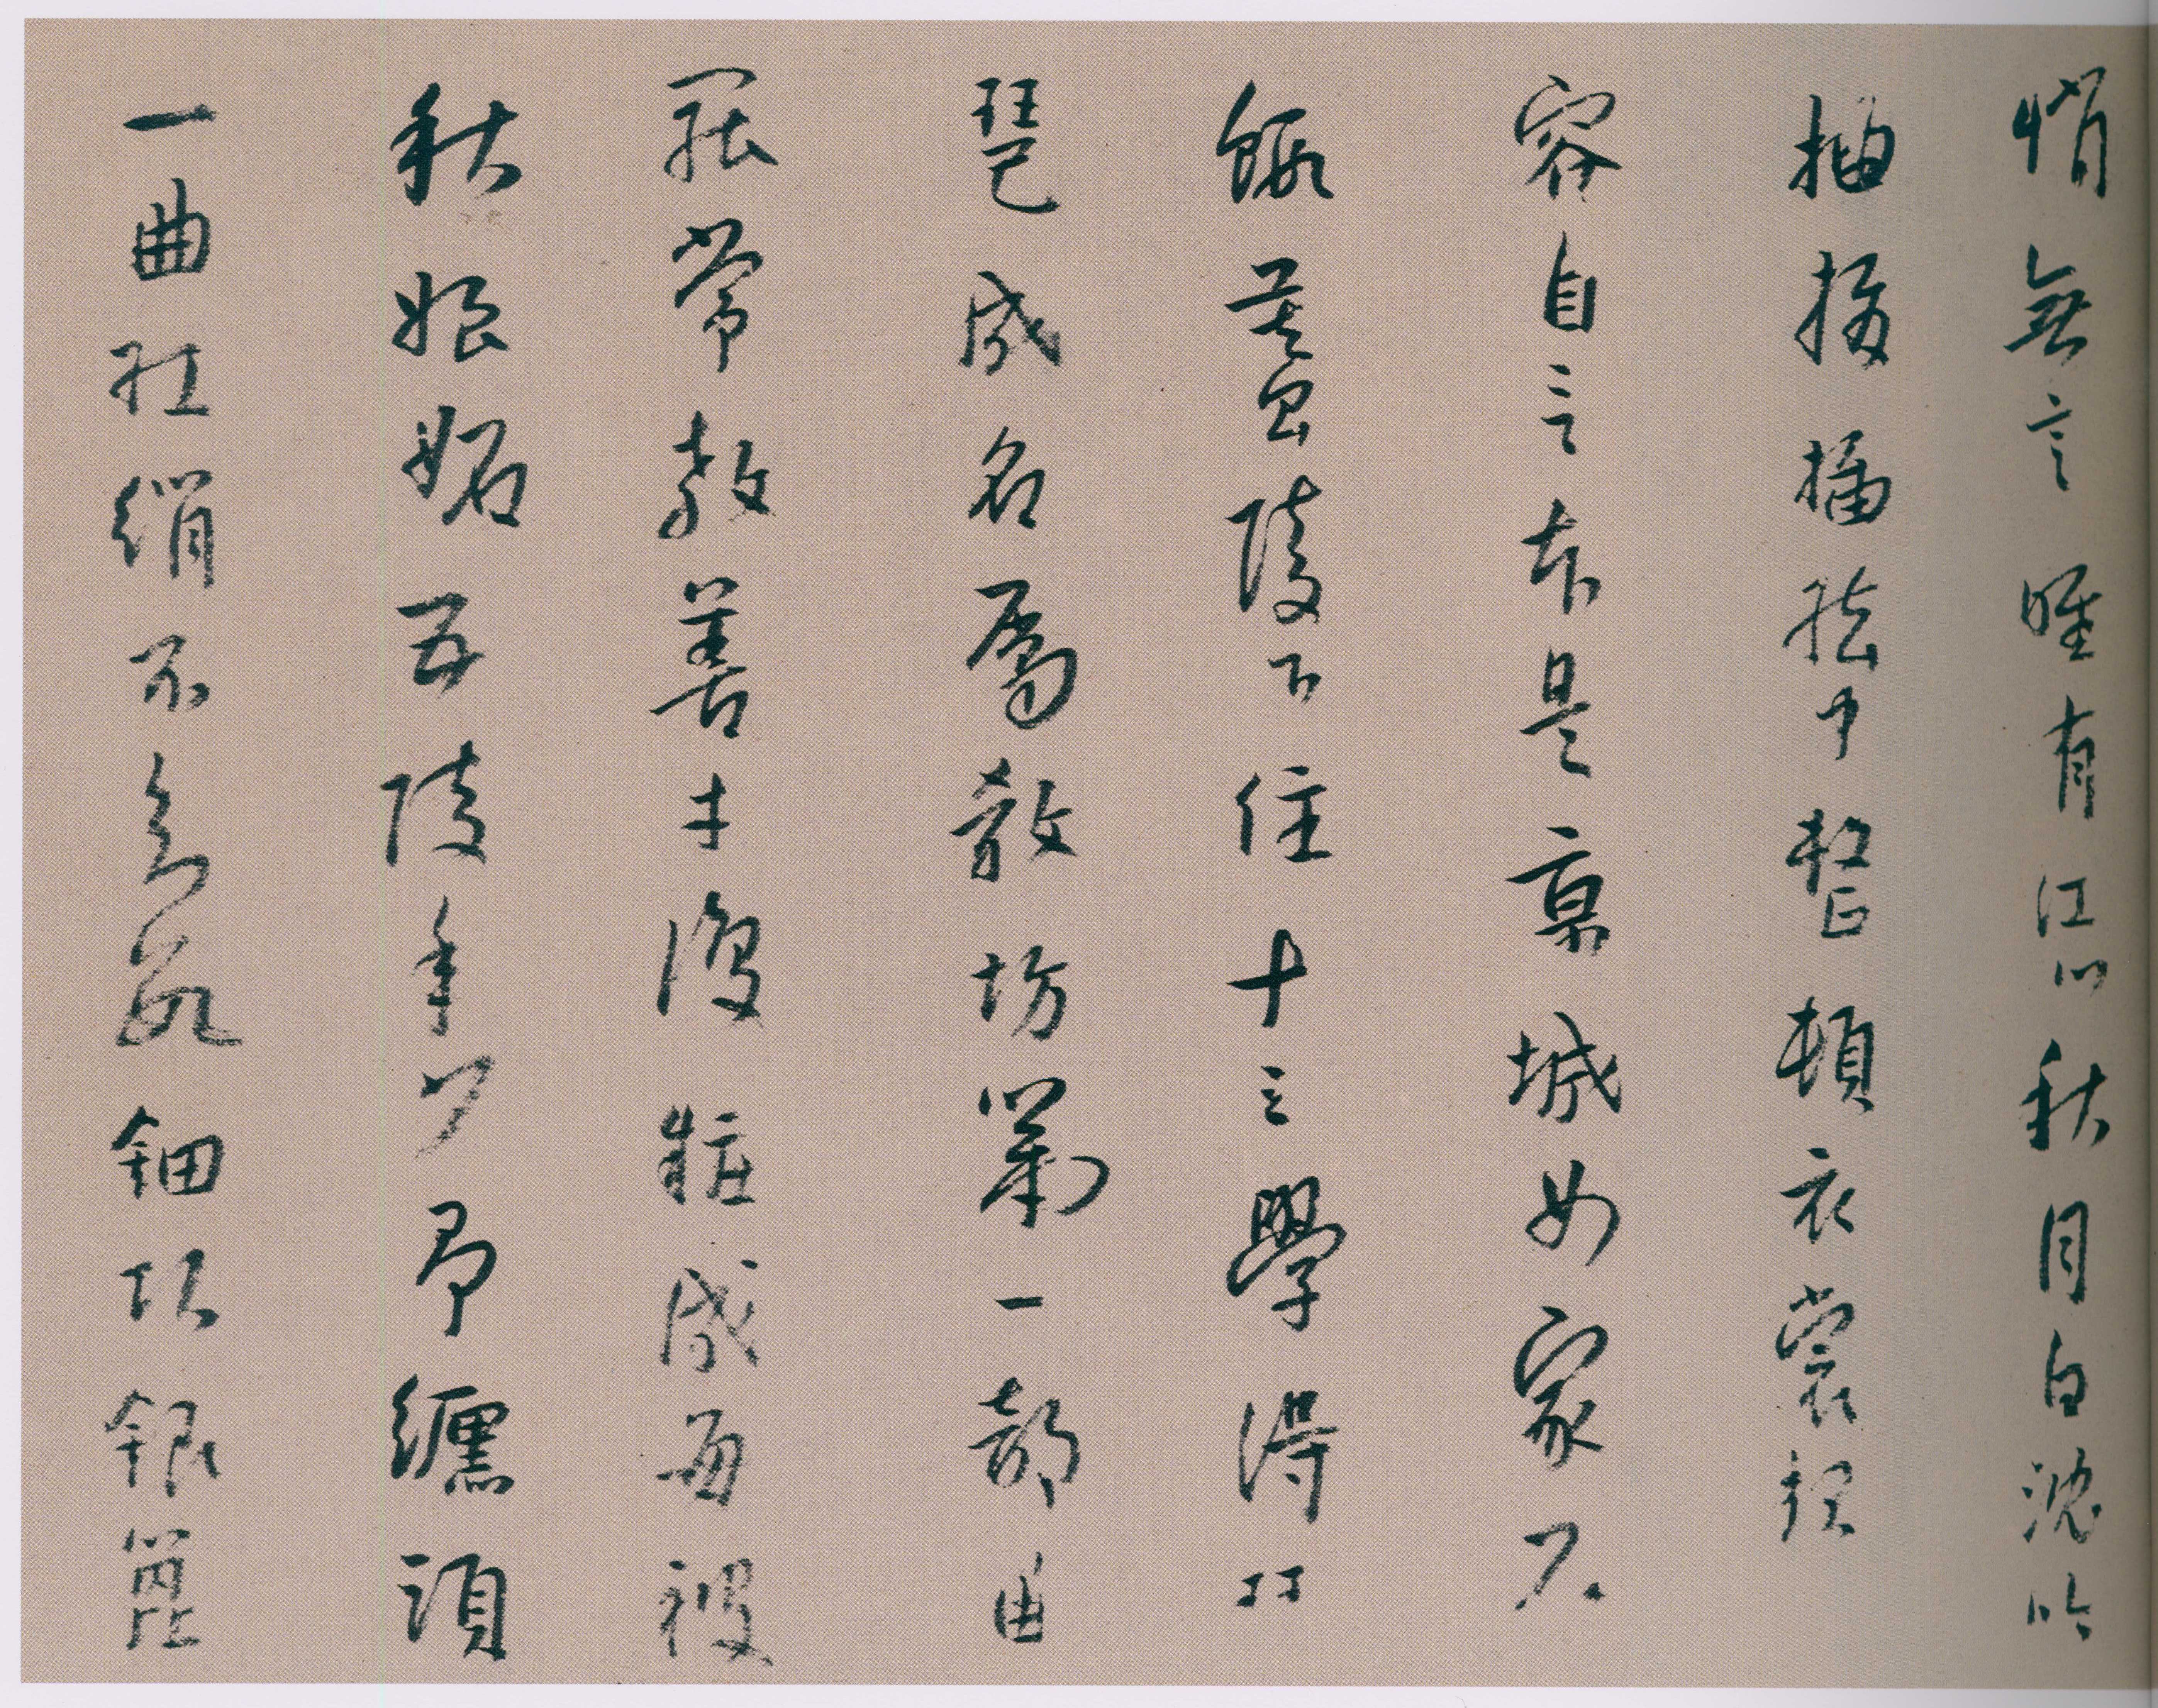 悄無言唯有江心秋月白沈吟
抽撥插絃中整頓衣裳起
容自言本是京城女家在
蝦蟇陵下住十三學得琵
琶成名屬教坊第一部曲
罷常教善才復粧成每被
秋娘妬五陵年少爭纏頭
一曲紅綃不知數鈿頭銀篦